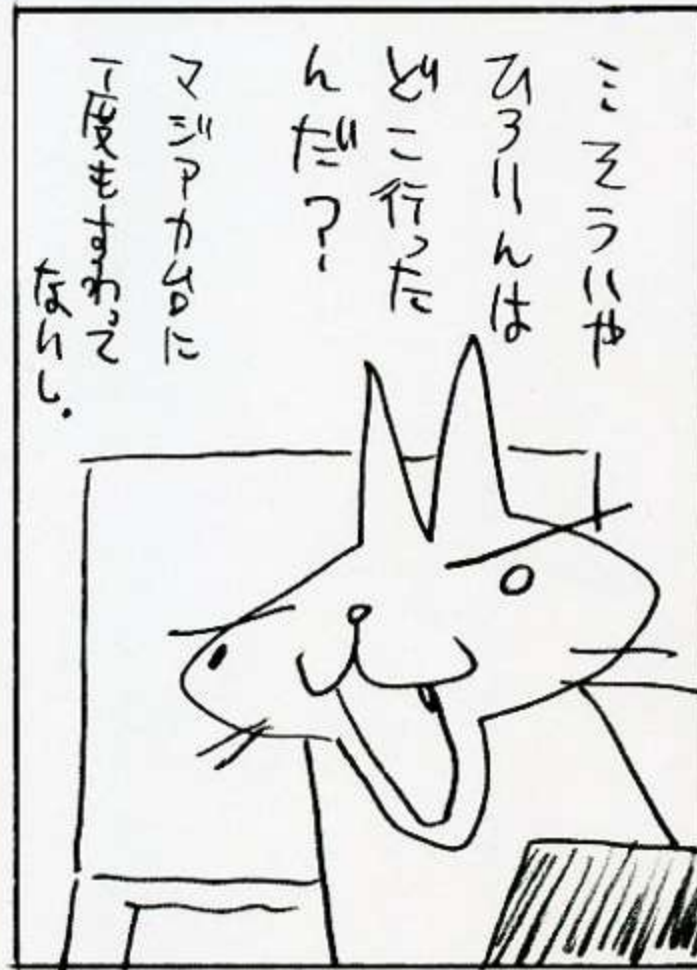 …そういや
ひろりんは
どこ行った
んだ？
マジアカ台に
一度もすわって
ないし．